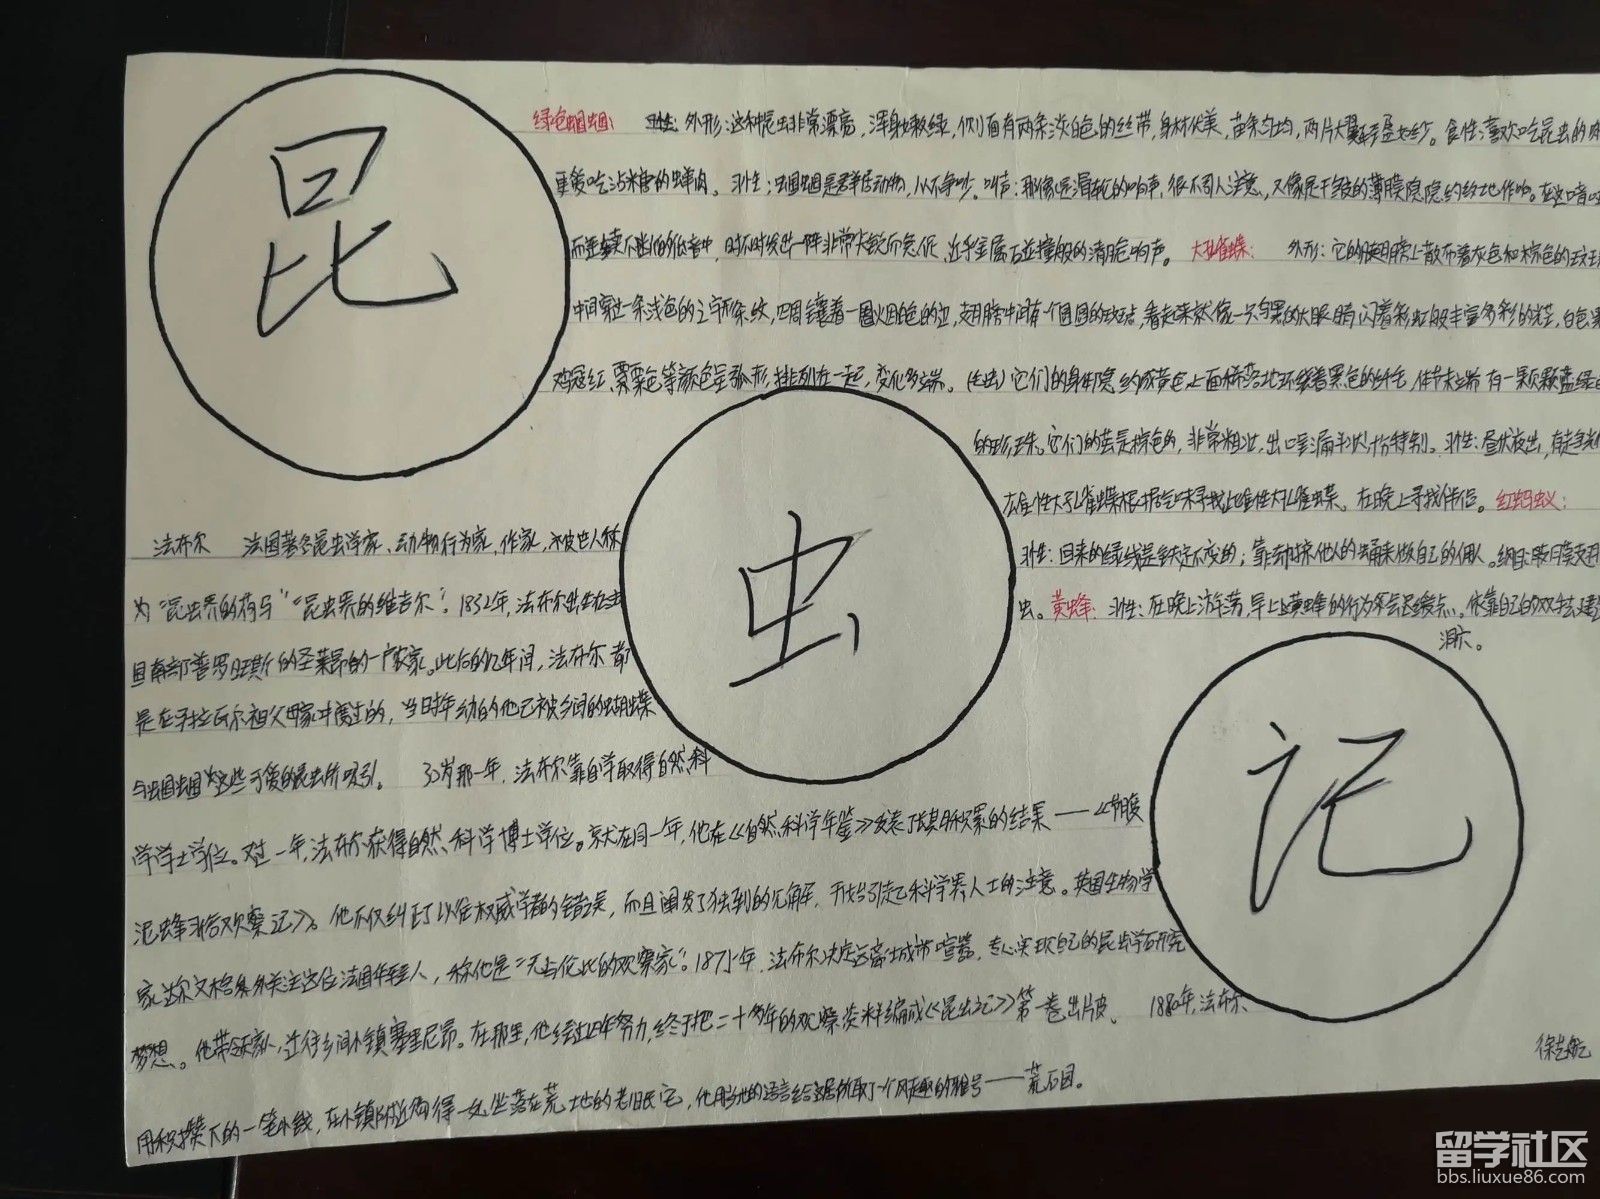 昆
虫
记
绿色蝈蝈： 外形：这种昆虫非常漂亮，浑身嫩绿，侧面有两条淡白色的丝带，身材优美，苗条匀均，两片大翼轻盈如纱。食性：喜欢吃昆虫的肉
更爱吃沾米唐的蝉肉。习性：蝈蝈是群居动物，从不争吵。叫声：那像是滑轮的响声，很不引人注意，又像是干皱的薄膜隐隐约约地作响。在这喑哑
而连续不断的低音中，时不时发出一阵非常尖锐而急促、近乎金属石碰撞般的清脆响声。 大孔雀蝶： 外形：它的翅膀上散布着灰色和棕色的斑
中间穿过一条浅色的之字形条纹，四周镶着一圈灰白色的边，翅膀中间有一个圆圆的斑点，看起来就像一只乌黑的大眼睛闪着彩虹般丰富多彩的光芒，白色黑
鸡冠红、栗色等颜色呈弧形，排列在一起，变化多端。（虫）它们的身体隐约成黄色，上面稀落地环绕着黑色的纤毛，体节末端有一颗颗蓝绿
的珍珠。它们的茧是棕色的，非常粗壮，出口呈漏斗状十分特别。习性：昼伏夜出，有趋光
雄性大孔雀蝶根据气味寻找雌性大孔雀蝶。在晚上寻找伴侣。 红蚂蚁：
习性：回来的路线是铁定不变的；靠劫掠他人的蛹来做自己的佣人。
虫。 黄蜂： 习性：在晚上游荡，早上黄蜂的行为不会迟缓点。依靠自己的双
消亡。
法布尔 法国著名昆虫学家、动物行为家、作家，被世人称
为“昆虫界的荷马”“昆虫界的维吉尔”。1832年，法布尔出生在法
国南部普罗旺斯的圣莱昂的一户农家。此后的几年间，法布尔都
是在马拉瓦尔祖父母家中度过的，当时年幼的他已被乡间的蝴蝶
与蝈蝈这些可爱的昆虫所吸引。 30岁那一年，法布尔靠自学取得自然科
学学士学位。又过一年，法布尔获得自然科学博士学位。就在同一年，他在《自然科学年鉴》发表了长期积累的结果——《节腹
泥蜂习俗观察记》。他不仅纠正了以往权威学者的错误，而且阐发了独到的见解，开始引起了科学界人士的注意。英国生物学
家达尔文格外关注这位法国年轻人，称他是“无与伦比的观察家”。1875年，法布尔决定远离城市喧嚣，专心实现自己的昆虫学研究
梦想。他带领家人，迁往乡间小镇塞里尼昂。在那里，他经过四年努力，终于把二十多年的观察资料编成《昆虫记》第一卷出版。 1880年，法布尔
用积攒下的一笔小钱，在小镇附近购得一处坐落在荒地的老旧民宅，他用当地的语言给这居所取了一个风趣的雅号——荒石园。
留学社区
bbs.liuxue86.com